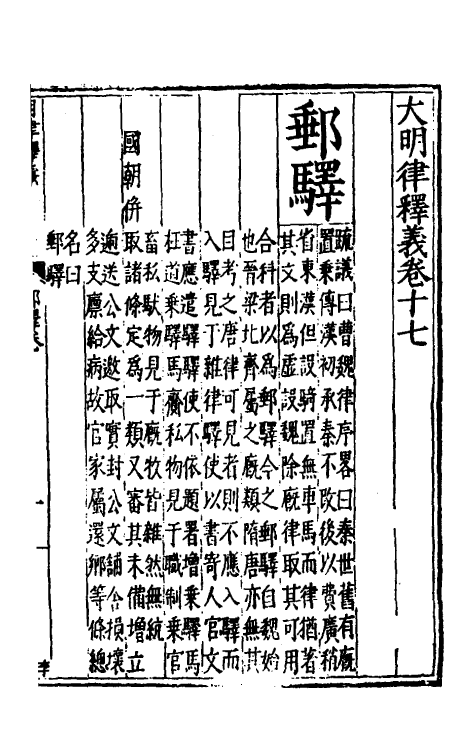 大明律釋義卷十七
郵驛
疏議曰曹魏律序畧曰秦世舊有廐
置乗傳漢初承秦不改後以費廣稍
省東漢但設騎置無車馬而律猶著
其文則爲虛設魏除廐律取其可用
合科者以爲郵驛令之郵驛自魏始
也晉梁北齊屬之廐類隋唐亦無其
目考之唐律可見者則不應入驛而
入驛見于雜律驛使以書寄人官文
書應遣驛驛使不依題署増乗驛馬
枉道乗驛馬齎私物見于職制乗官
畜私馱物見于廐牧皆雜然無統
國朝併取諸條定爲一類又審其未備増立
逓送公文邀取實封公文鋪舎損壞
多支廪給病故官家屬還鄉等條總
名曰
郵驛